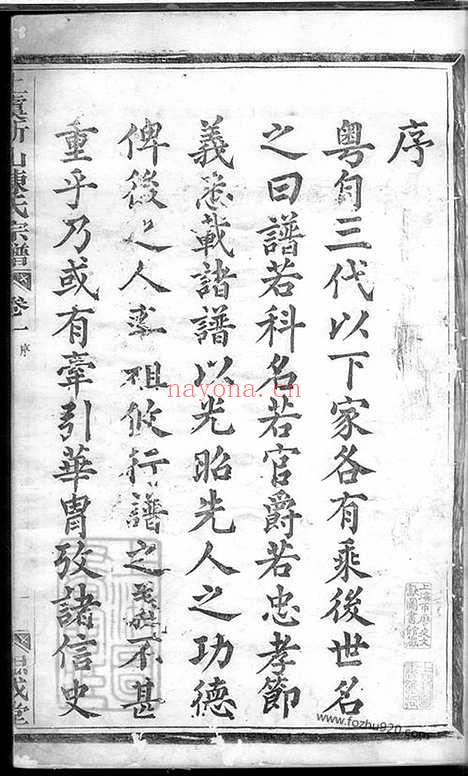 序
粤自三代以下家各有乘後世名
之曰譜若科名若官爵若忠孝節
義悉載諸譜以光昭先人之功德
俾後之人率祖攸行譜之義不甚
重乎乃或有牽引華胄攷諸信史
虞 山陳氏宗譜 卷一 序
思成堂
nayona.cn
上海市歷史文獻圖書館藏
www.fozhu920.com